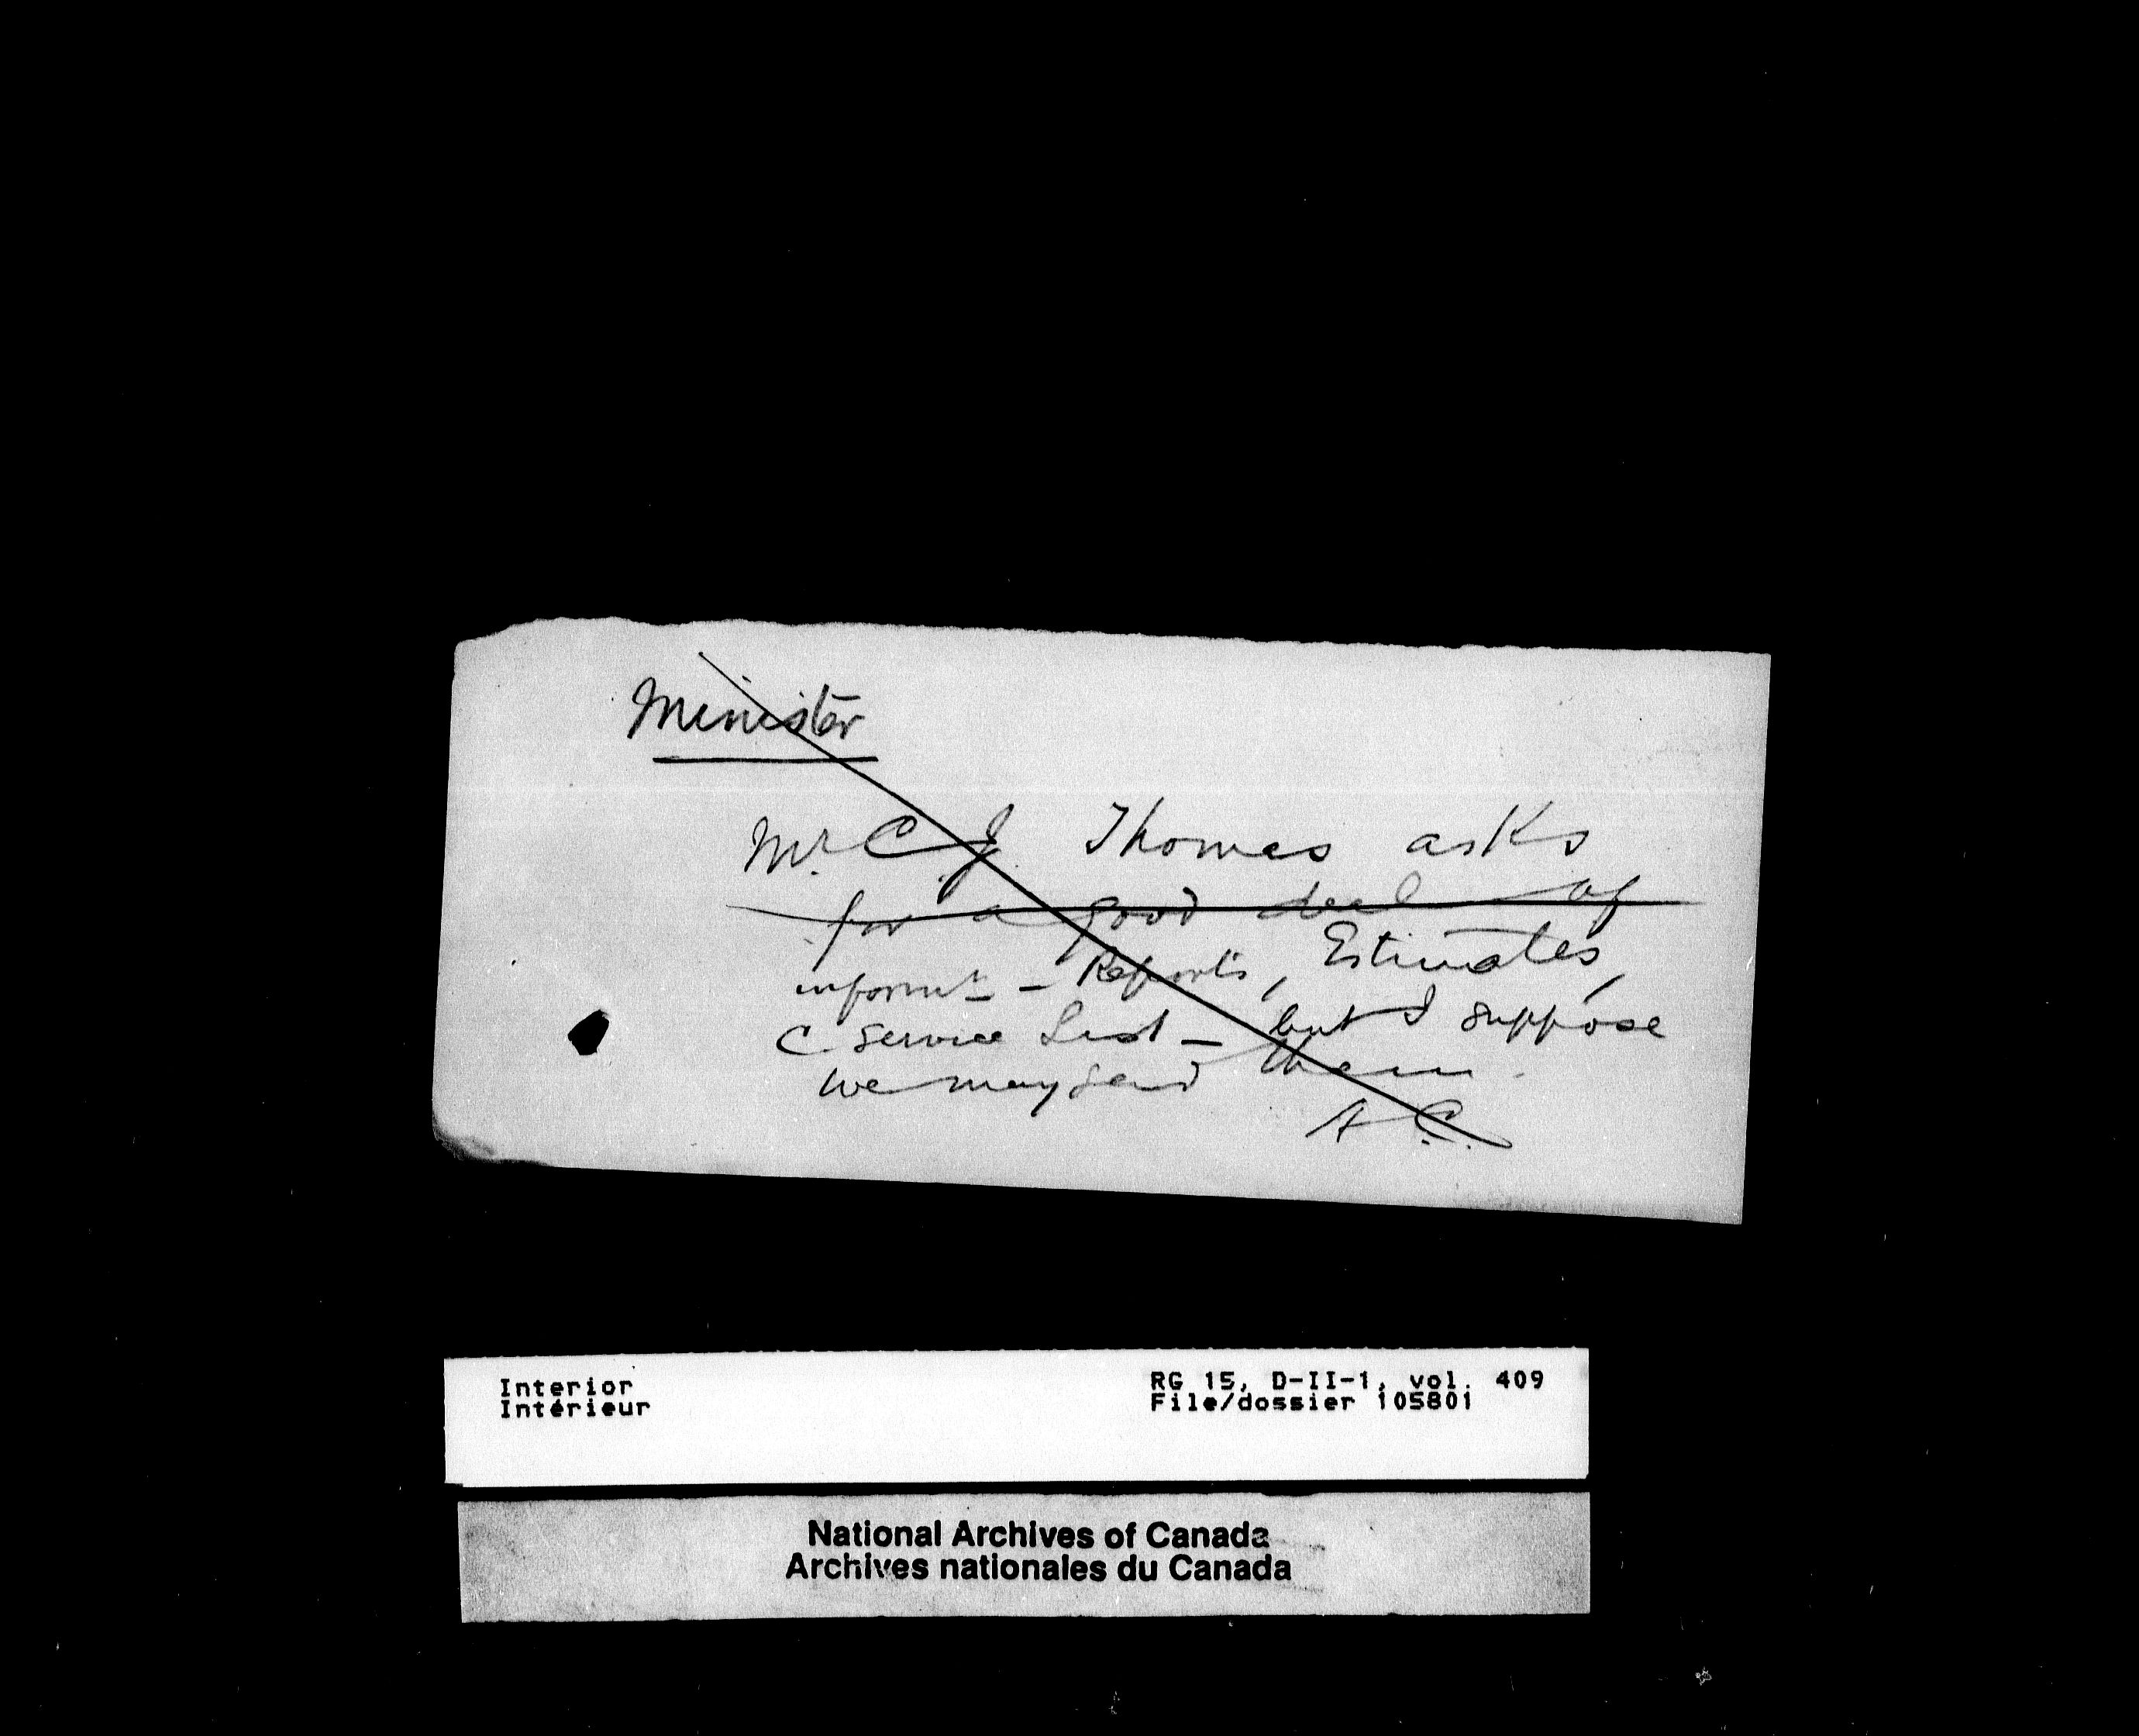 Minister
Mr. C. J. Thomas asks
for a good deal of
informt - Reports, Estimates,
C. Service List - but I suppose
we may send them.
A C.
Interior
Intérieur
RG 15, D-II-1, vol. 409
File/dossier 105801
National Archives of Canada
Archives nationales du Canada